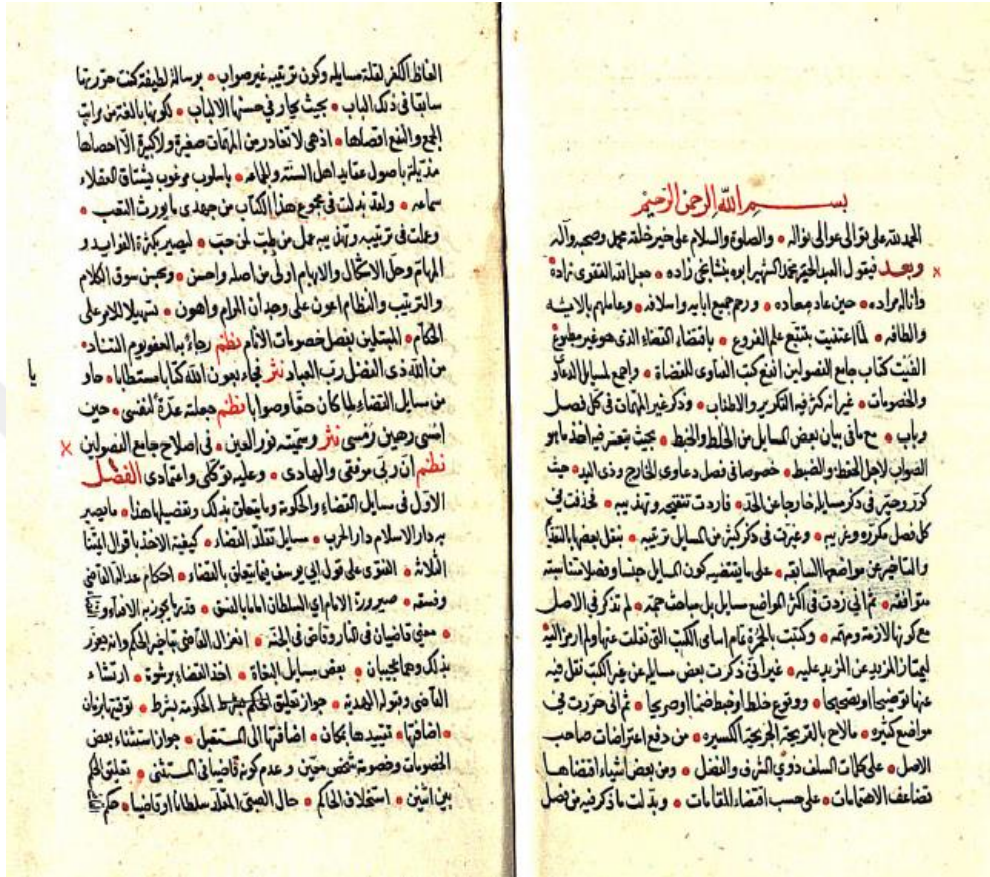 بسم الله الرحمن الرحيم
الحمد لله على توالى عوالى نواله • والصلوة والسلام على خير خلقه محمد وصحبه وآله
وبعد فيقول العبد الحقير محمد الشهير بنشانجى زاده • جعل الله التقوى زاده
واناله مراده • حين عاد معاده • ورحم جميع آبايه واسلافه • وعاملهم
والطافه • لما اعتنيت بتتبع علم الفروع • باقتضاء القضاء الذى هو غير مطبوع
الفيت كتاب جامع الفصولين انفع كتب الفتاوى للقضاة • واجمع لمسايل الدعاوى
والخصومات • غير انه كثر فيه التكرير والاطناب • وذكر غير المهمات فى كل فصل
وباب • مع ما فى بيان بعض المسايل من الخلط والخبط • بحيث يتعسر فيه اخذ ما هو
الصواب لاهل الحفظ والضبط • خصوصا فى فصل دعاوى الخارج وذى اليد • حيث
كرر وحير فى ذكر مسايله خارجا عن الحد • فاردت تنقيحه وتهذيبه • فحذفت فى
كل فصل مكرره وغريبه • وغيرت فى ذكر كثير من المسايل ترتيبه • بنقل بعضها بالتقديم
والتاخير عن مواضعها السابقة • على ما يقتضيه كون المسايل جنسا وفصلا متناسبة
متوافقة • ثم انى زدت فى اكثر المواضع مسايل بل مباحث جمة • لم تذكر فى الاصل
مع كونها لازمة ومهمة • وكتبت بالحمرة تمام اسامى الكتب التى نقلت عنها ولم ارمز اليه
ليمتاز المزيد عن المزيد عليه • غير انى ذكرت بعض مسايل عن غير الكتب نقل فيه
عنها توضيحا وتصحيحا • ووقوع خلط او خبط ضمنا او صريحا • ثم انى حررت فى
مواضع كثيره • ما لاح بالقريحة الجريحة الكسيره • من دفع اعتراضات صاحب
الاصل • على كلمات السلف ذوى الشرف والفضل • ومن بعض اشياء اقتضاها
تضاعف الاهتمامات • على حسب اقتضاء المقامات • وبدلت ما ذكر فيه من فصل
الفاظ الكفر لقلة مسايله وكون ترتيبه غير صواب • برسالة لطيفة كنت حررتها
سابقا فى ذلك الباب • بحيث يحار فى حسنها الالباب • لكونها بالغة من مراتب
الجمع والنفع اقصاها • اذ هى لا تغادر من المهمات صغيرة ولا كبيرة الا احصاها
مذيلة باصول عقايد اهل السنة والجماعه • باسلوب مرغوب يشتاق العقلاء
سماعه • ولقد بذلت فى مجموع هذا الكتاب من جهدى ما يورث التعب •
وعملت فى ترتيبه وتهذيبه عمل من طب لمن حب • ليصير بكثرة الفوايد و
المهام وحل الاشكال والابهام اولى من اصله واحسن • وبحسن سوق الكلام
والترتيب والنظام اعون على وجدان المرام واهون • تسهيلا للامر على
الحكام • المبتلين بفصل خصومات الانام نظم رجاء به العفو يوم التناد •
من الله ذى الفضل رب العباد نثر فجاء بعون الله كتابا مستطابا • حاو
من سايل القضاء لما كان حقا وصوابا نظم جعلته عدة لنفسى • حين
امسى رهين رمسى نثر وسميته نور العين • فى اصلاح جامع الفصولين
نظم ان ربى موفقى والهادى • وعليه توكلى واعتمادى الفصل
الاول فى مسايل القضاء والحكومة وما يتعلق بذلك وتفصيلها هذا • ما يصير
به دار الاسلام دار الحرب • مسايل تقلد القضاء • كيفية الاخذ باقوال ايمتنا
الثلاثة • الفتوى على قول ابى يوسف فيما يتعلق بالقضاء • احكام عدالة القاضى
وفسقه • صيرورة الامام اى السلطان اماما بالفسق • قدر ما يجوز به الافتاء
• معنى قاضيان فى النار وقاض فى الجنة • انعزال القاضى
بذلك وهما عجيبان • بعض مسايل البغاة • اخذ القضاء برشوة • ارتشاء
القاضى وقبوله الهدية • جواز تعليق الحكم بشرط الحكومة بشرط • توقيتها بزمان
• اضافتها • تقييدها بمكان • اضافتها الى المستقبل • جواز استثناء بعض
الخصومات وخصومة شخص معين وعدم كونه قاضيا فى المستثنى • تعليق الحكم
بين اثنين • استخلاف الحاكم • حال الصبى المقلد سلطانا او قاضيا • حكم
يا